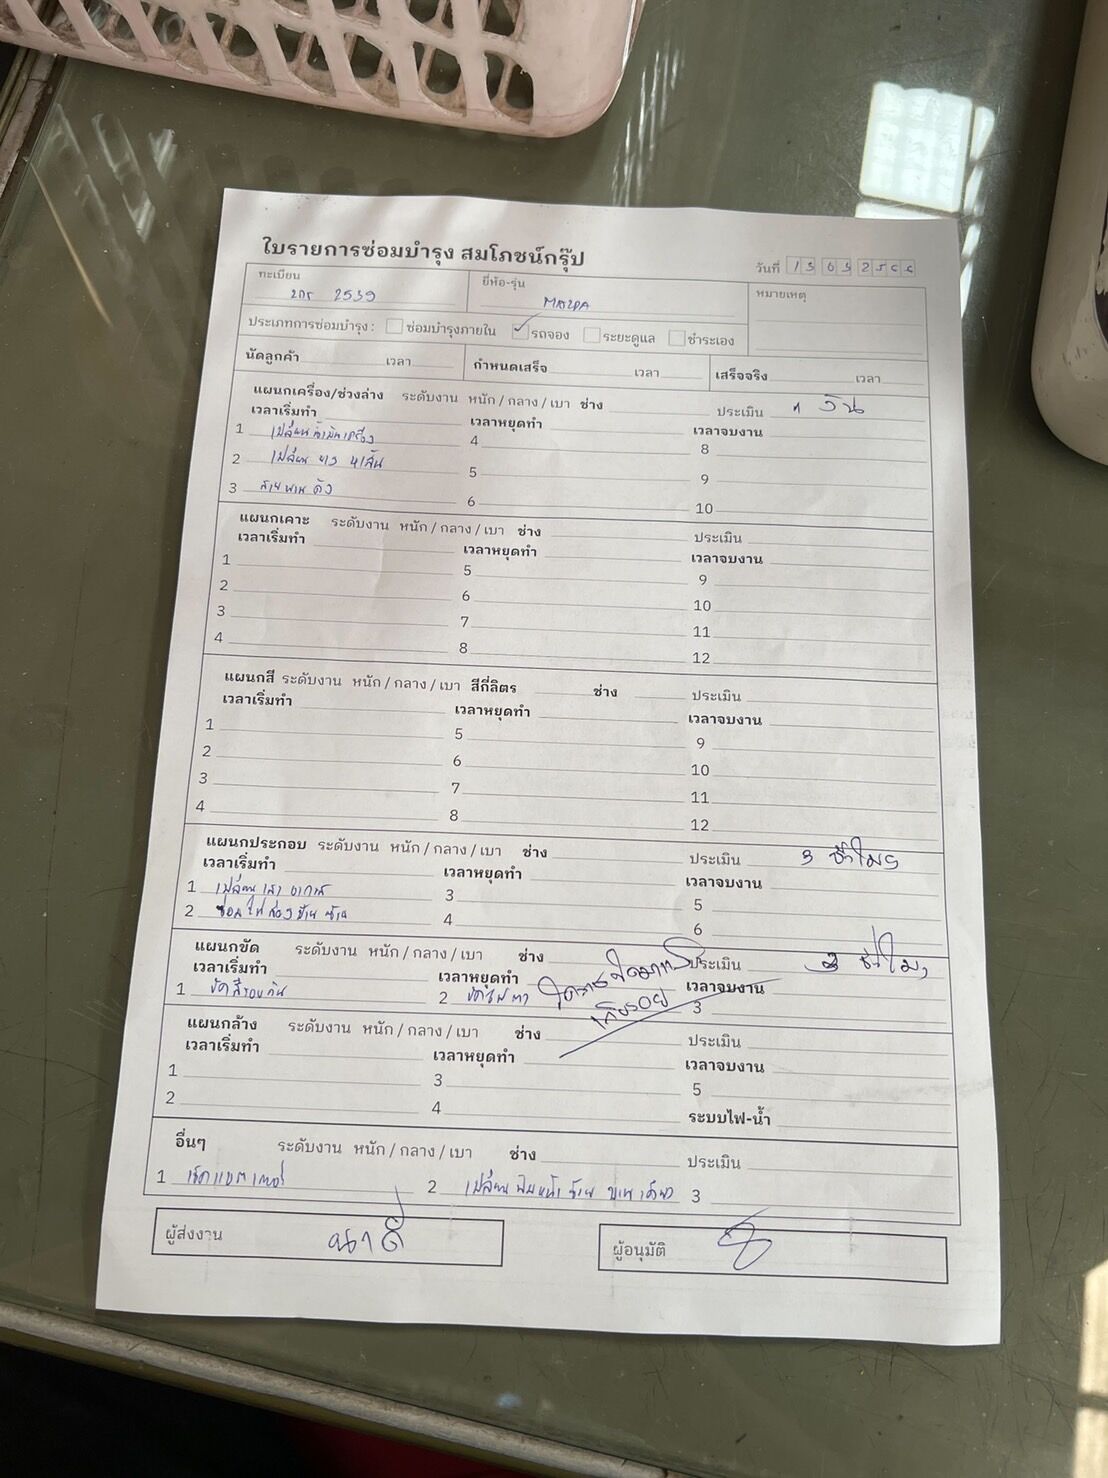 ใบรายการซ่อมบำรุง สมโภชน์กรุ๊ป
วันที่
ทะเบียน 2539
ยี่ห้อ-รุ่น MAZDA
หมายเหตุ
ประเภทการซ่อมบำรุง : ซ่อมบำรุงภายใน รถจอง ระยะดูแล ชำระเอง
นัดลูกค้า เวลา กำหนดเสร็จ เวลา เสร็จจริง เวลา
แผนกเครื่อง/ช่วงล่าง ระดับงาน หนัก / กลาง / เบา ช่าง ประเมิน 1 วัน
เวลาเริ่มทำ เวลาหยุดทำ เวลาจบงาน
1 เปลี่ยนน้ำมันเครื่อง 4 8
2 เปลี่ยน ยาง 4 เส้น 5 9
3 สายพาน ดัง 6 10
แผนกเคาะ ระดับงาน หนัก / กลาง / เบา ช่าง ประเมิน
เวลาเริ่มทำ เวลาหยุดทำ เวลาจบงาน
1 5 9
2 6 10
3 7 11
4 8 12
แผนกสี ระดับงาน หนัก / กลาง / เบา สีกี่ลิตร ช่าง ประเมิน
เวลาเริ่มทำ เวลาหยุดทำ เวลาจบงาน
1 5 9
2 6 10
3 7 11
4 8 12
แผนกประกอบ ระดับงาน หนัก / กลาง / เบา ช่าง ประเมิน 3 ชั่วโมง
เวลาเริ่มทำ เวลาหยุดทำ เวลาจบงาน
1 เปลี่ยน เสา อากาศ 3 5
2 ซ่อม ไฟ ส่อง ป้าย 4 6
แผนกขัด ระดับงาน หนัก / กลาง / เบา ช่าง ประเมิน ชั่วโมง
เวลาเริ่มทำ เวลาหยุดทำ เวลาจบงาน
1 ขัดสีรอบคัน 2 ขัดไฟตา 3
แผนกล้าง ระดับงาน หนัก / กลาง / เบา ช่าง ประเมิน
เวลาเริ่มทำ เวลาหยุดทำ เวลาจบงาน
1 3 5
2 4 ระบบไฟ-น้ำ
อื่นๆ ระดับงาน หนัก / กลาง / เบา ช่าง ประเมิน
1 เช็คแบตเตอรี่ 2 เปลี่ยน ฟิล์มหน้า ซ้าย บานเดียว 3
ผู้ส่งงาน
ผู้อนุมัติ